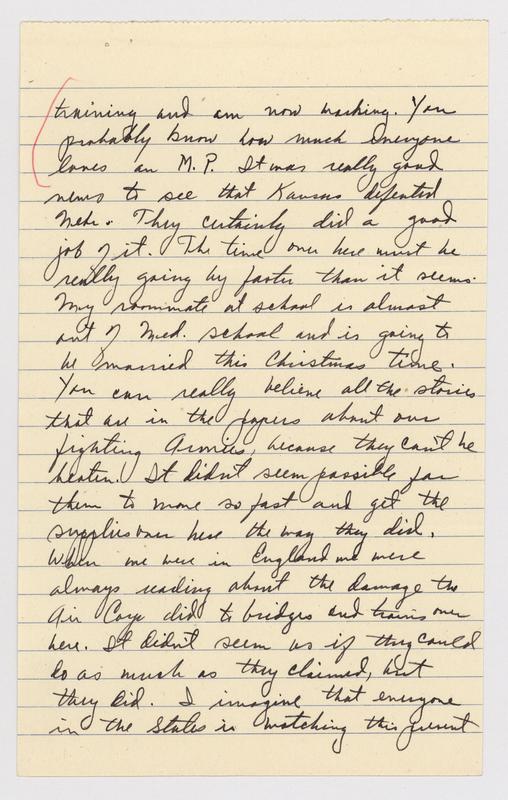 training and am now working. You
probably know how much everyone
loves an M.P. It was really good
news to see that Kansas defeated
Nebr. They certainly did a good
job of it. The time over here must be
really going by faster than it seems.
My roommate at school is almost
out of Med. school and is going to
be married this Christmas time.
You can really believe all the stories
that are in the papers about our
fighting Armies, because they can't be
beaten. It didn't seem possible for
them to move so fast and get the
supplies over here the way they did.
When we were in England we were
always reading about the damage the
Air Corp did to bridges and trains over
here. It didn't seem as if they could
do as much as they claimed, but
they did. I imagine that everyone
in the States is watching this present